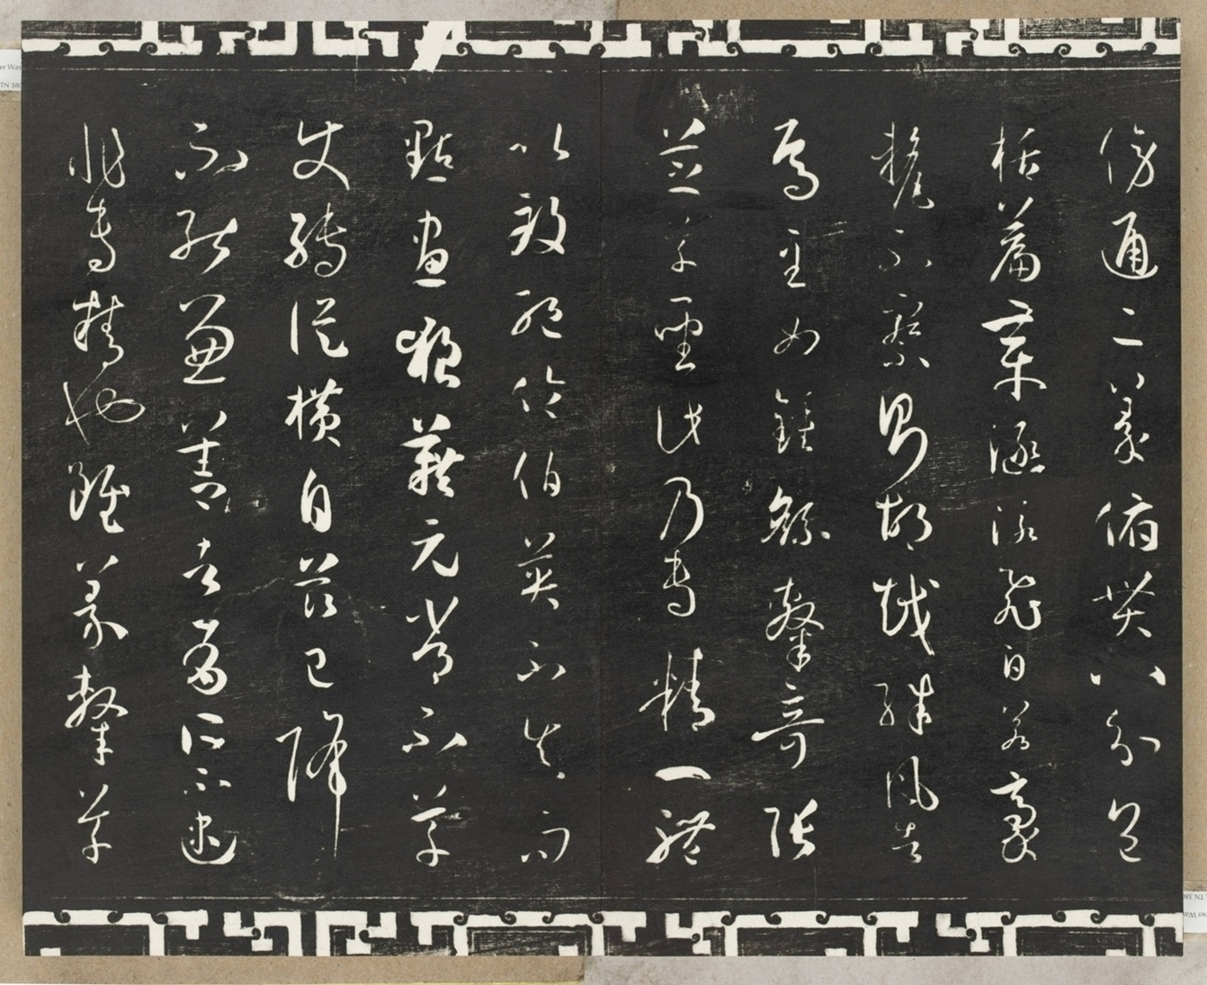 傍通二篆俯貫八分包
括篇章涵泳飛白若毫
釐不察則胡越殊風者
焉至如鍾繇隸奇張
芝草聖此乃專精一體
以致絕倫伯英不真而
點畫狼藉元常不草
使轉縱橫自茲已降
不能兼善者有所不逮
非專精也雖篆隸草